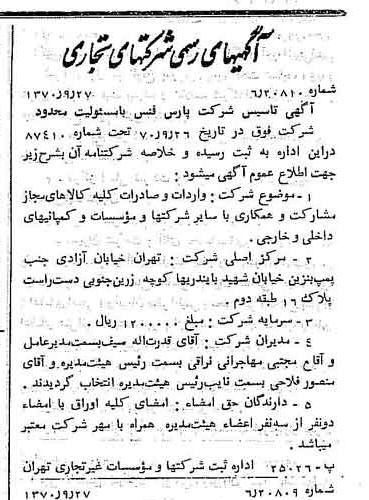 آگهیهای رسمی شرکتهای تجاری
شماره ۶/۲۰۸۱۰ ۱۳۷۰/۹/۲۷
آگهی تاسیس شرکت پارس فنس بامسئولیت محدود
شرکت فوق در تاریخ ۷۰/۹/۲۶ تحت شماره ۸۷۴۱۰
دراین اداره به ثبت رسیده و خلاصه شرکتنامه آن بشرح‌زیر
جهت اطلاع عموم آگهی میشود :
۱ - موضوع شرکت : واردات و صادرات کلیه کالاهای‌مجاز
مشارکت و همکاری با سایر شرکتها و مؤسسات و کمپانیهای
داخلی و خارجی .
۲ - مرکز اصلی شرکت : تهران خیابان آزادی جنب
پمپ‌بنزین خیابان شهید بایندریها کوچه زرین‌جنوبی دست‌راست
پلاک ۱۶ طبقه دوم .
۳ - سرمایه شرکت : مبلغ ۱۲۰۰۰۰۰ ریال .
۴ - مدیران شرکت : آقای قدرت‌اله سیف‌بسمت‌مدیرعامل
و آقای مجتبی مهاجرانی نراقی بسمت رئیس هیئت‌مدیره و آقای
منصور فلاحی بسمت نایب‌رئیس هیئت‌مدیره انتخاب گردیدند .
۵ - دارندگان حق امضاء : امضای کلیه اوراق با امضاء
دونفر از سه‌نفر اعضاء هیئت‌مدیره همراه با مهر شرکت معتبر
میباشد .
پ-۲۵۰۲۶ اداره ثبت شرکتها و مؤسسات غیرتجاری تهران
شماره ۶/۲۰۸۰۹ ۱۳۷۰/۹/۲۷